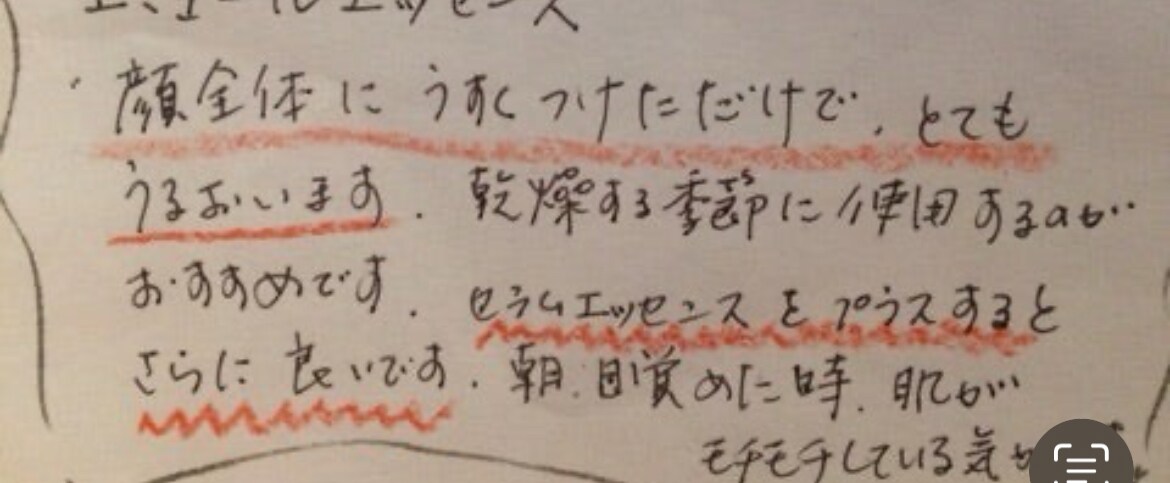 エッセンス
・顔全体にうすくつけただけで、とても
うるおいます。乾燥する季節に使用するのが
おすすめです。セラムエッセンスをプラスすると
さらに良いです。朝、目覚めた時、肌が
モチモチしている気